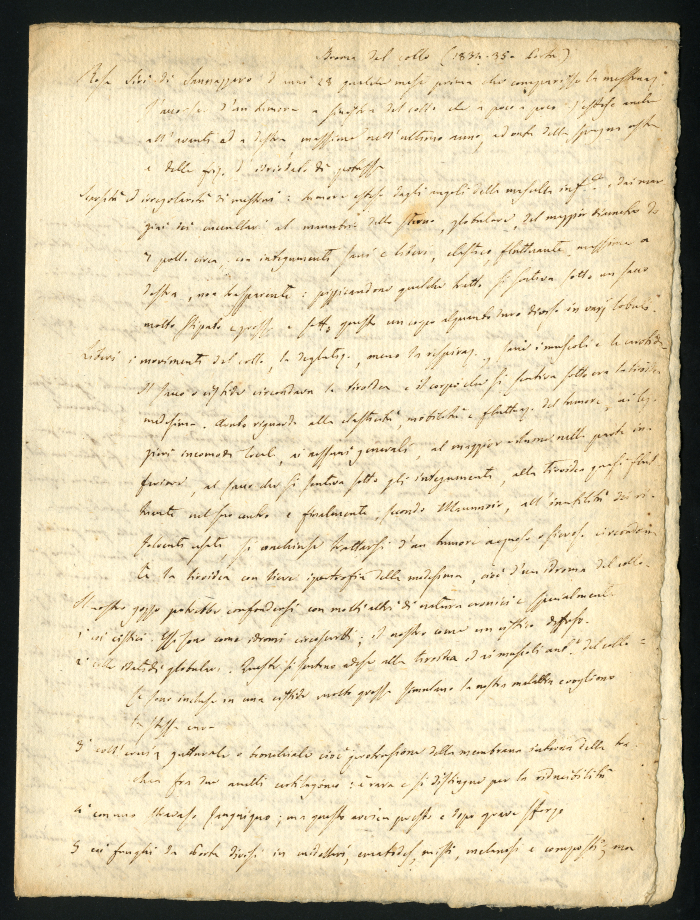 Broma del collo (1834-35
Rosa di Sannazzaro d'anni 28 qualche mese prima che comparisse la
s'accorse d'un tumore a sinistra del collo che a poco a poco s'estese anche
all'avanti ed a destra, massime nell'ultimo anno, ad onta della spugna
e delle d' di potassa
ed irregolarità di mestrui: tumore esteso dagli angoli della mascella inf.e, dai mar
gini dei al manubrio dello sterno, globulare, del maggior diametro di
7 pollici circa, con integumenti sani e liberi, elastico fluttuante massime a
destra, non trasparente: pizzicandone qualche tratto si sentiva sotto un sacco
molto stipato e grosso e sotto questo un corpo alquanto duro diviso in varj lobuli.
Liberi i movimenti del collo, la deglutiz., meno la respiraz., sani i muscoli e le carotidi
Il sacco o cistide circondava la tiroidea e il corpo che si sentiva sotto era la tiroidea
medesima. Avuto riguardo alla elasticità, mobilità e fluttuaz. del tumore, ai leg-
gieri incomodi locali, ai nessuni generali, al maggior volume nella parte in-
feriore, al sacco che si sentiva sotto gli integumenti, alla tiroidea quasi flut
tuante nel suo centro e finalmente, secondo Maunoir, all'inutilità dei ri-
solventi usati, si conchiuse trattarsi d'un tumore acqueo o sieroso circondan-
te la tiroidea con lieve ipertrofia della medesima, cioè d'un idroma del collo.
Il nostro gozzo potrebbe confondersi con molti altri di natura cronici e specialmente
1° coi cistici. Essi sono come idromi circoscritti; il nostro come un cistico diffuso.
2° colle idatidi globulari. Queste si sentono adese alla tiroidea ed ai muscoli ant.i del collo =
Se sono incluse in una cistide molto grossa simulano la nostra malattia e vogliono
la stessa cura
3° coll'ernia gutturale o bronchiale cioè protrusione della membrana interna della tra
chea fra due anelli cartilaginei: è rara e si distingue per la riducibilità
4° con uno stravaso sanguigno; ma questo avviene presto e dopo grave sforzo
5° coi funghi da divisi in midollari, ematodes, misti, melanosi e composti; ma